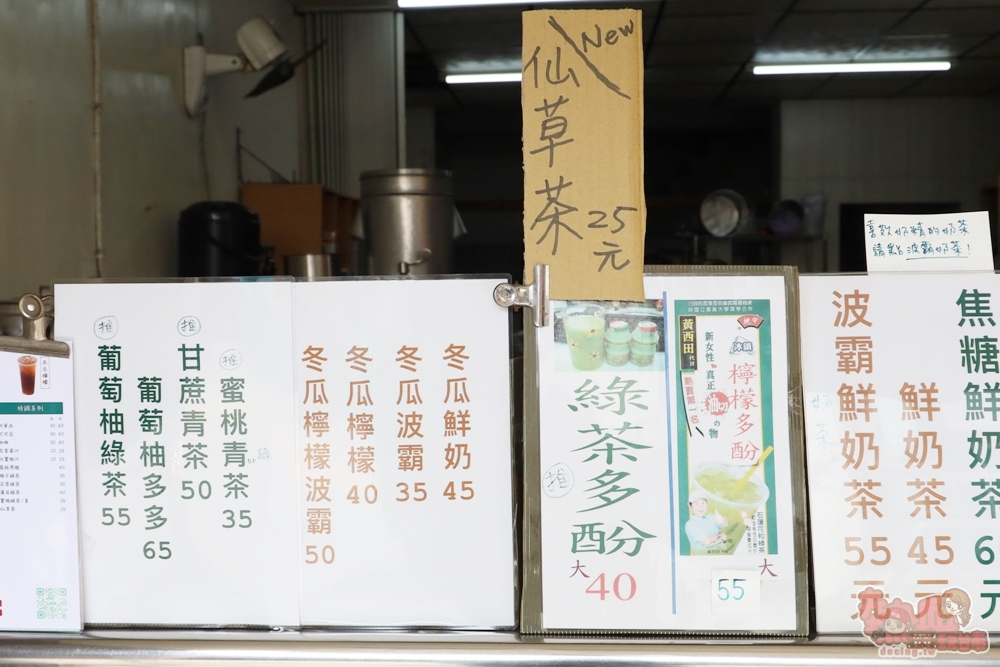 New
仙草茶
25
元
喜歡奶精的奶茶
請點波霸奶茶!
推
葡萄柚綠茶
55
葡萄柚多多
65
推
甘蔗青茶
50
推
蜜桃青茶
35
冬瓜檸檬波霸
50
冬瓜檸檬
40
冬瓜波霸
35
冬瓜鮮奶
45
推
綠茶多酚
大
40
黃西田
新女性
真正
の物
檸檬多酚
熱賣第一名
石蓮花和綠茶
55
大
波霸鮮奶茶
55
元
鮮奶茶
45
元
焦糖鮮奶茶
6
元
特調系列
decing.tw